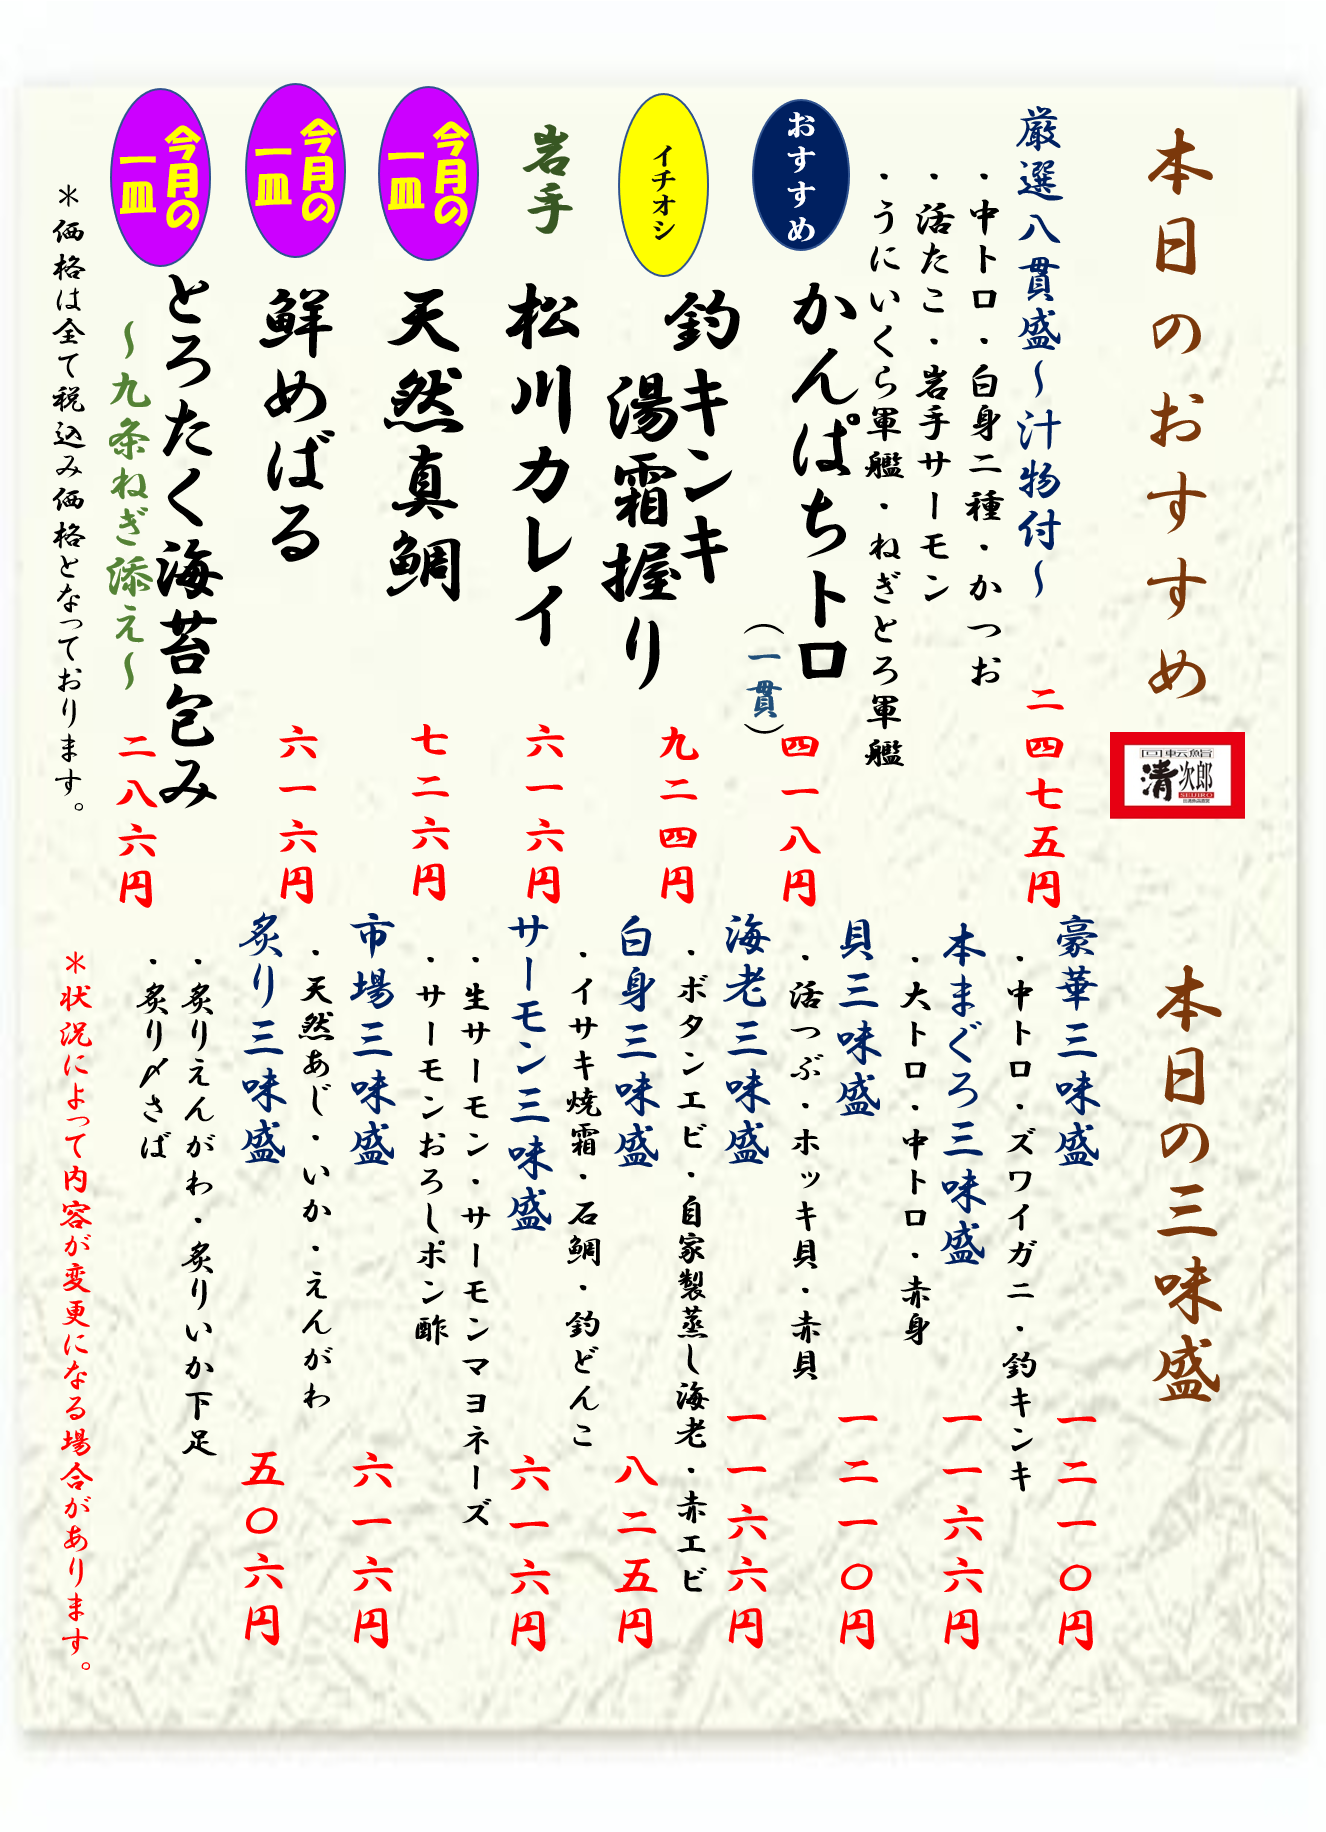 本日のおすすめ
回転鮨
清次郎
SEIJIRO
厳選八貫盛～汁物付～
二四七五円
・中トロ・白身二種・かつお
・活たこ・岩手サーモン
・うにいくら軍艦・ねぎとろ軍艦
おすすめ
かんぱちトロ
（一貫）
四一八円
イチオシ
釣キンキ
湯霜握り
九二四円
岩手
松川カレイ
六一六円
今月の
一皿
天然真鯛
七二六円
今月の
一皿
鮮めばる
六一六円
今月の
一皿
とろたく海苔包み
～九条ねぎ添え～
二八六円
＊価格は全て税込み価格となっております。
本日の三味盛
豪華三味盛
一二一〇円
・中トロ・ズワイガニ・釣キンキ
本まぐろ三味盛
一一六六円
・大トロ・中トロ・赤身
貝三味盛
一二一〇円
・活つぶ・ホッキ貝・赤貝
海老三味盛
一一六六円
・ボタンエビ・自家製蒸し海老・赤エビ
白身三味盛
八二五円
・イサキ焼霜・石鯛・釣どんこ
サーモン三味盛
六一六円
・生サーモン・サーモンマヨネーズ
・サーモンおろしポン酢
市場三味盛
六一六円
・天然あじ・いか・えんがわ
炙り三味盛
五〇六円
・炙りえんがわ・炙りいか下足
・炙り〆さば
＊状況によって内容が変更になる場合があります。